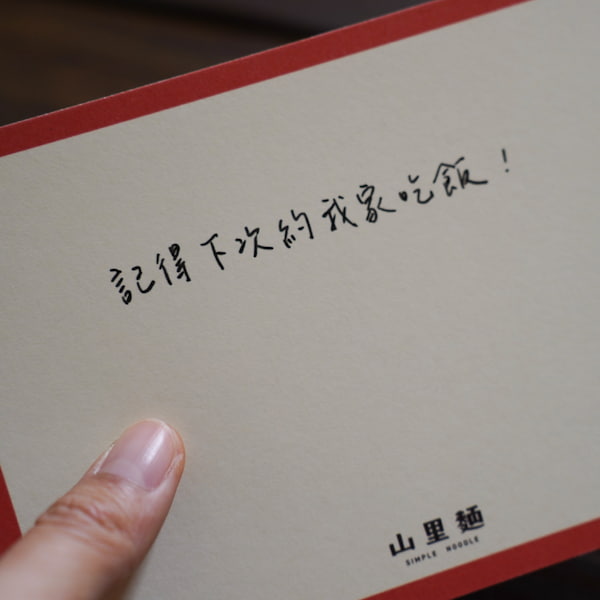 記得下次約我家吃飯！
山里麵
SIMPLE NOODLE